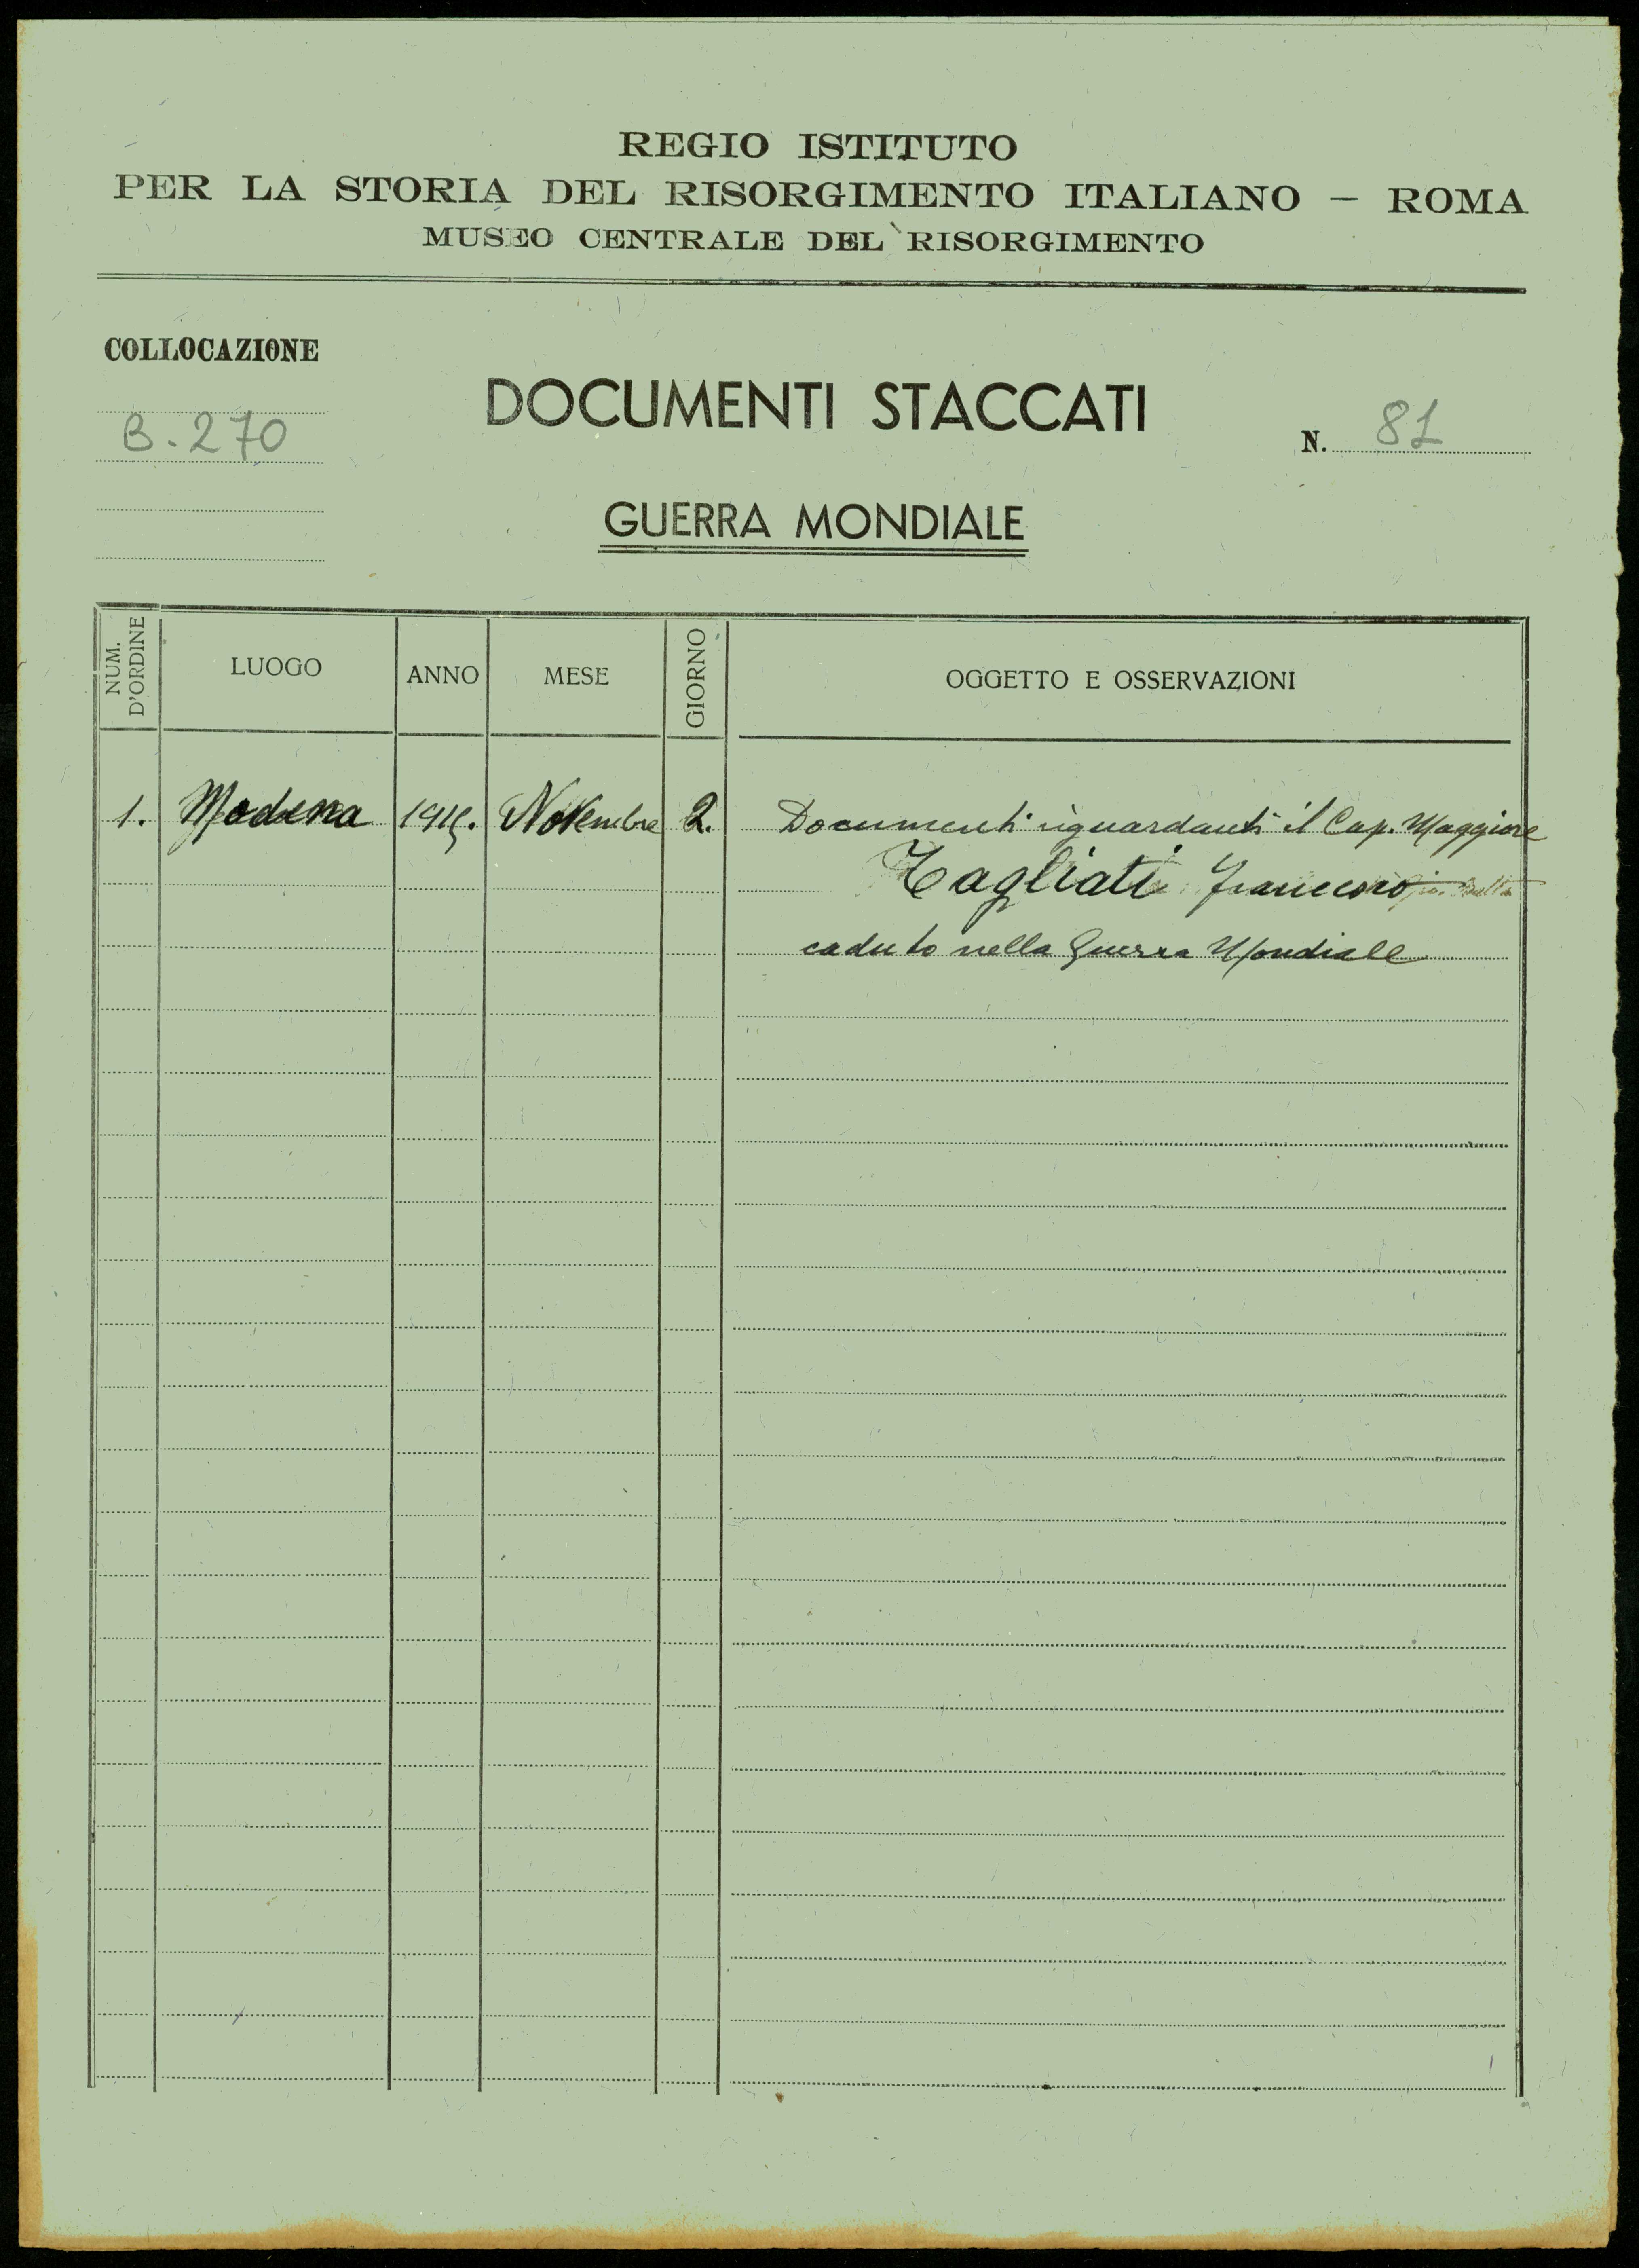 REGIO ISTITUTO
PER LA STORIA DEL RISORGIMENTO ITALIANO — ROMA
MUSEO CENTRALE DEL RISORGIMENTO
COLLOCAZIONE
B. 270
DOCUMENTI STACCATI
N. 81
GUERRA MONDIALE
NUM. D'ORDINE LUOGO ANNO MESE GIORNO OGGETTO E OSSERVAZIONI
1. Modena 1915. Novembre 2. Documenti riguardanti il Cap. Maggiore
Tagliati Francesco
caduto nella Guerra Mondiale